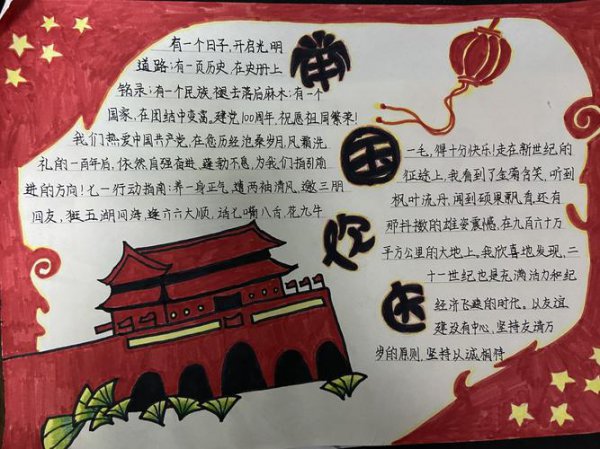 举国欢庆
有一个日子,开启光明
道路;有一页历史,在史册上
铭录;有一个民族,褪去落后麻木;有一个
国家,在团结中变富,建党100周年,祝愿祖国繁荣!
我们热爱中国共产党,在危历经沧桑岁月,风霸洗
礼的一百年后,依然自强奋进,蓬勃不息,为我们指引前
进的方向!七一行动指南:养一身正气,遗两袖清风,邀三朋
四友,逛五湖四海,逢六六大顺,话七嘴八舌,花九牛
一毛,得十分快乐!走在新世纪的
征途上,我看到了金菊含笑,听到
枫叶流丹,闻到硕果飘香,还有
那抖擞的雄姿震憾,在九百六十万
平方公里的大地上,我欣喜地发现,二
十一世纪也是充满活力和纪
经济飞建的时代。以友谊
建设有中心,坚持友清万
岁的原则,坚持以诚相待